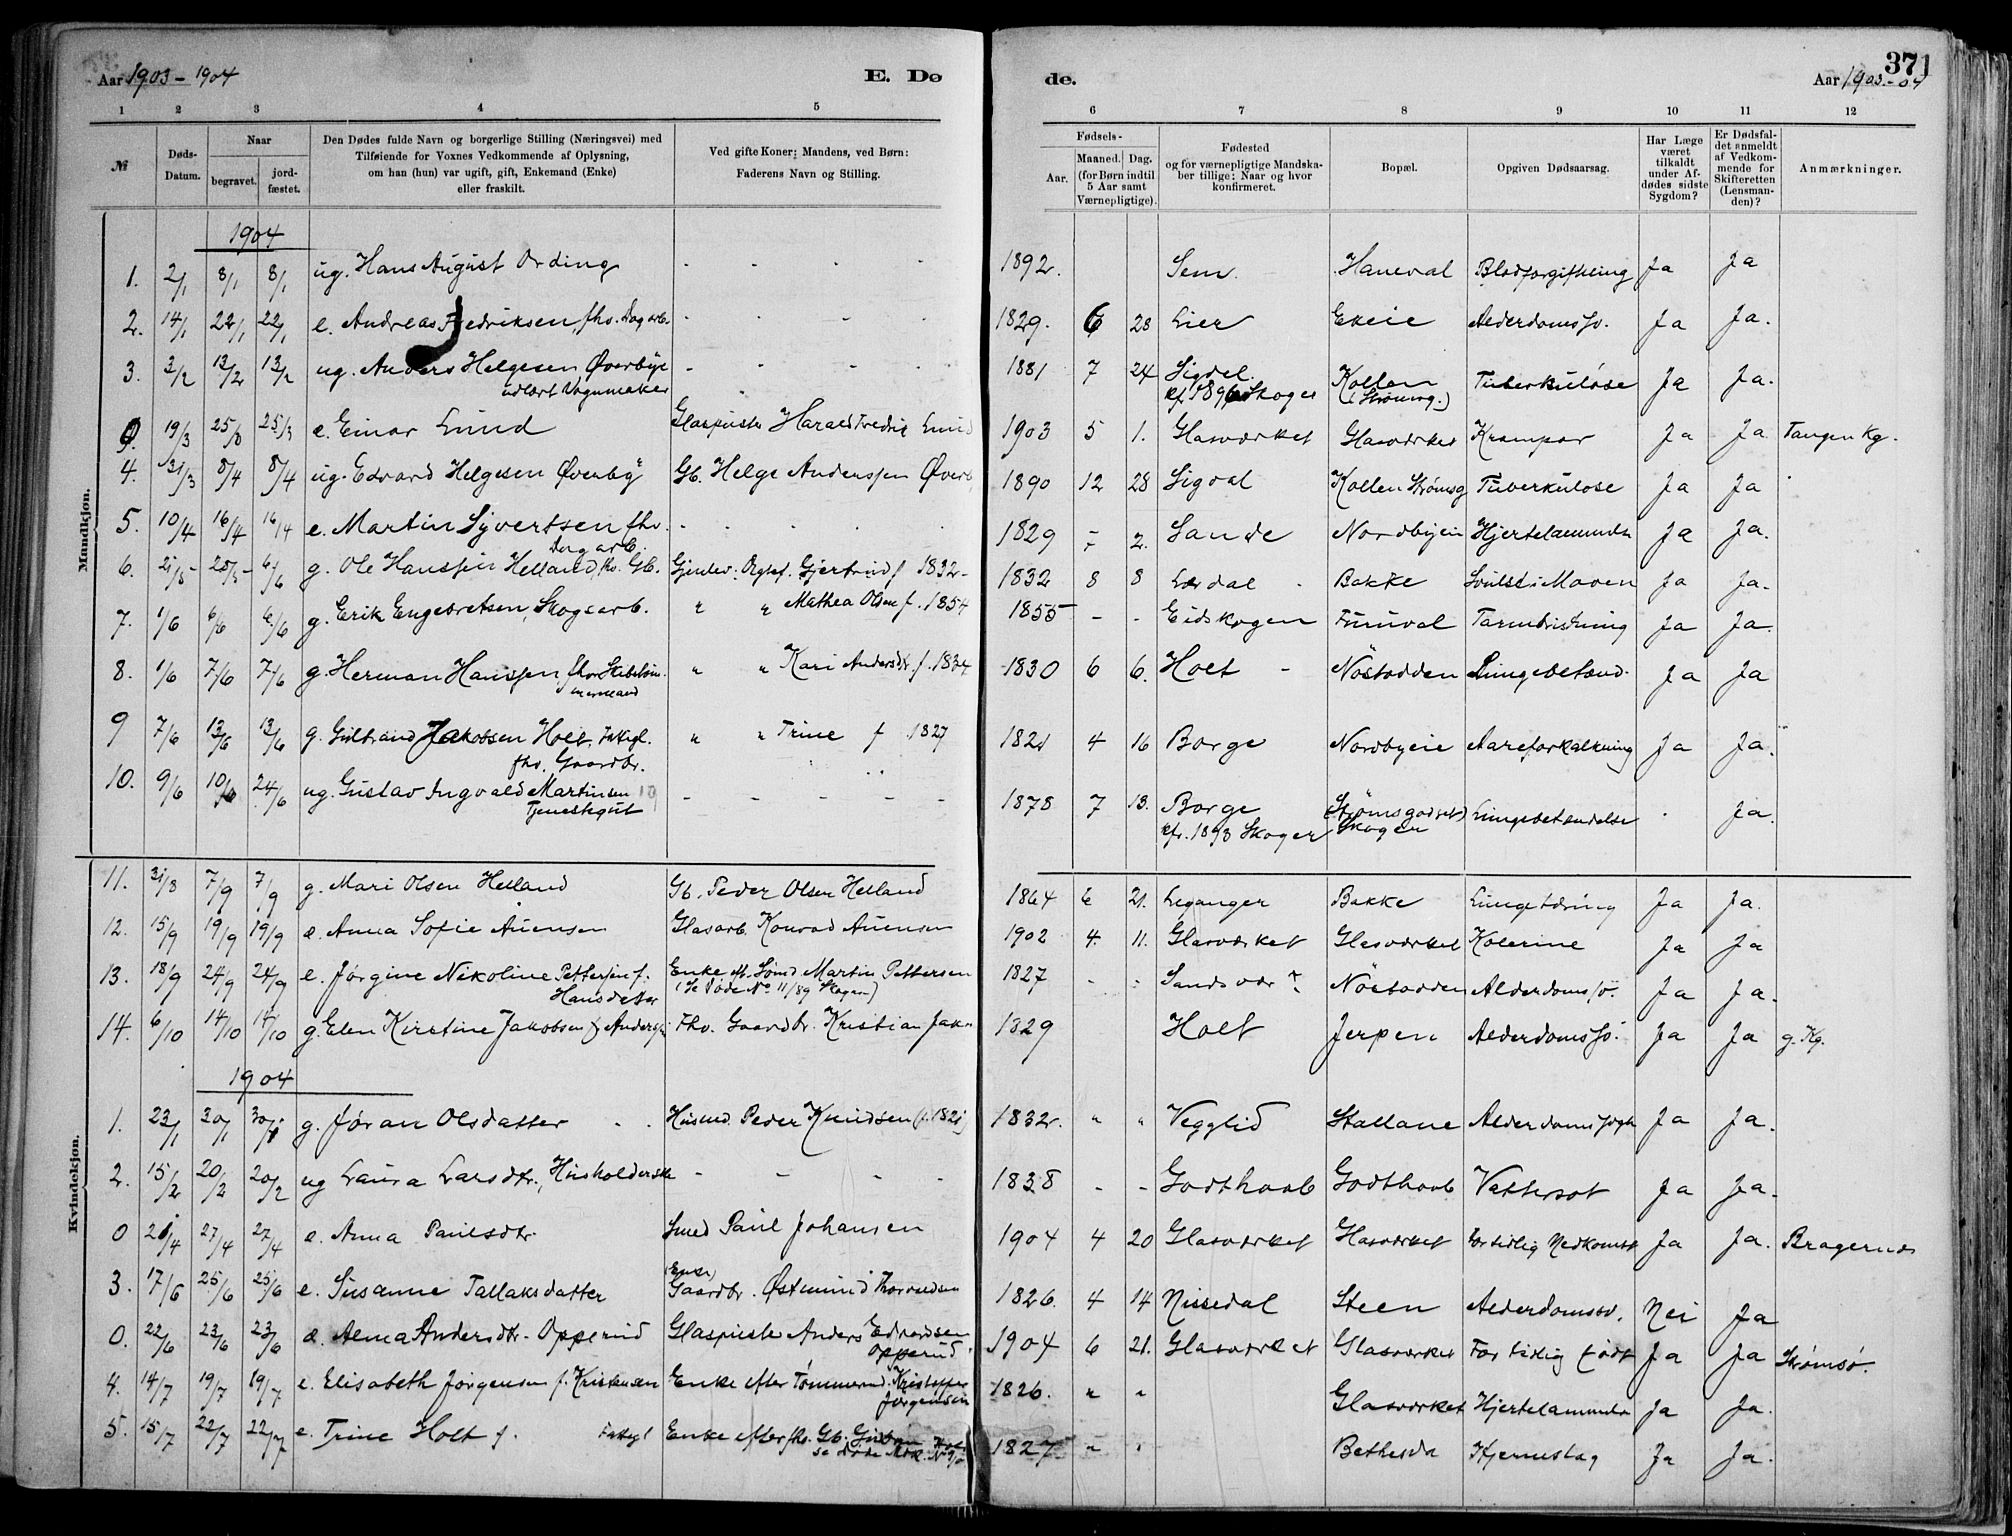 Aar 1903 - 1904
E. Dø
de.
371
Aar 1903-04
1 2 3 4 5 6 7 8 9 10 11 12
№
Døds-Datum.
Naar
begravet.
jord-fæstet.
Den Dødes fulde Navn og borgerlige Stilling (Næringsvei) med
Tilføiende for Voxnes Vedkommende af Oplysning,
om han (hun) var ugift, gift, Enkemand (Enke)
eller fraskilt.
Ved gifte Koner: Mandens, ved Børn:
Faderens Navn og Stilling.
Fødsels-
Aar.
Maaned. Dag.
(for Børn indtil
5 Aar samt
Værnepligtige).
Fødested
og for værnepligtige Mandska-
ber tillige: Naar og hvor
konfirmeret.
Bopæl.
Opgiven Dødsaarsag.
Har Læge
været
tilkaldt
under Af-
dødes sidste
Sygdom?
Er Dødsfal-
det anmeldt
af Vedkom-
mende for
Skifteretten
(Lensman-
den)?
Anmærkninger.
Mandkjøn.
1904
1. 2/1 8/1 8/1 ug. Hans August Ording - - - - 1892. Sem. Haneval Blodforgiftning Ja Ja
2. 14/1 22/1 22/1 e. Andreas Fredriksen, fhv. Dagarb. - - - - 1829. 6 28 Lier Ekeie Alderdomssv. Ja Ja.
3. 3/2 13/2 13/2 ug. Anders Helgesen Øverbye - - - - 1881 7 24 Sigdal Kollen Tuberkuløse Ja Ja.
udlært Vognmaker kf. 1896 Skoger (Strømsg.)
0. 19/3 25/3 25/3 e. Einar Lund Glaspuster Harald Fredrik Lund 1903 5 1. Glasværket Glasværket Krampar Ja Ja Tangen Kg.
4. 31/3 8/4 8/4 ug. Edvard Helgesen Øverby Gb. Helge Anderssen Øverb 1890 12 28 Sigdal Kollen Strømsg Tuberkulose Ja Ja
5. 10/4 16/4 16/4 e. Martin Syvertsen fhv. - - - - 1829 - 2. Sande Nordbyeie Hjertelammelse Ja Ja.
Dagarb.
6. 21/5 28/5 6/6 g. Ole Hanssen Helland, fhv. Gb. Gjenlev. Ægtef. Gjertrud f 1832- 1832 8 8 Lærdal - Bakke Svulst i Maven Ja Ja.
7. 1/6 6/6 6/6 g. Erik Engebretsen, Skogsarb. " " Mathea Olsen f. 1854 1855 - - Eidskogen Furuval Tarmbristning Ja Ja.
8. 1/6 7/6 7/6 g. Herman Hanssen, fhv. Skibstøm- " " Kari Andersdtr f. 1834 1830 6 6. Holt - Nöstodden Lungebetænd. Ja Ja
mermand
9 7/6 13/6 13/6 g. Gulbrand Jakobsen Holt, Fattigl. " " Trine f 1827 1821 4 16 Borge Nordbyeie Aareforkalkning Ja Ja.
fhv. Gaardbr.
10. 9/6 10/6 24/6 ug. Gustav Ingvald Martinsen - - - - - 1878 7 13. Borge (Strømsgodset) Lungebetændelse . Ja.
Tjenestegut kfr. 1893 Skoger Skoger
11. 31/8 7/9 7/9 g. Mari Olsen Helland Gb. Peder Olsen Helland 1864 6 21. Leganger Bakke Lungetæring Ja Ja.
12. 15/9 19/9 19/9 e. Anna Sofie Auensen Glasarb. Konrad Auensen 1902 4. 11. Glasværket Glasværket Kolerine Ja Ja
13. 18/9 24/9 24/9 e. Jørgine Nikoline Pettersen f. Enke eft. Sømd Martin Pettersen 1827 - - Sandsvær Nöstodden Alderdomssv. Ja Ja.
Hansdatter (Se Døde No 11/89 Skoger)
14. 6/10 14/10 14/10 g. Elen Kirstine Jakobsen f. Anderss Fhv. Gaardbr. Kristian Jak 1829 Holt Jerpen Alderdomssv. Ja Ja g. Kg.
1904
Kvindekjøn.
1. 23/1 30/1 30/1 g. Jøran Olsdatter Husmd. Peder Knudsen (f. 1821) 1832. " " Vegglid Stallane Alderdomssvgh Ja Ja.
2. 15/2 20/2 20/2 ug Laura Larsdtr., Husholderske - - - - 1838 - - Godthaab Godthaab Vattersot Ja Ja.
0 21/4 27/4 27/4 e. Anna Paulsdtr. Smed Paul Johansen 1904 4 20 Glasværket Glasværket For tidlig Nedkomst Ja Ja. Bragernes
3. 17/6 25/6 25/6 e. Susanne Tallaksdatter (Enke) Gaardbr. Østmund Thorvaldsen 1826. 4 14 Nissedal Steen Alderdomssv. Nei Ja
0. 22/6 23/6 23/6 e. Anna Andersdtr. Opperud Glaspuster Anders Edvardsen 1904 6 21. Glasværket Glasværket For tidlig født Ja Ja Strømsø.
Opperud.
4. 14/7 19/7 19/7 e. Elisabeth Jørgensen f. Kristensen Enke efter Tømmermd. Kristoffer 1826. " " Glasværket Hjertelammelse Ja Ja.
Jørgensen
5. 15/7 22/7 22/7 e. Trine Holt f. Fattigl Enke efter fhv. Gb. Gulbran 1827 " " Bethesda Hjerneslag Ja Ja.
se døde